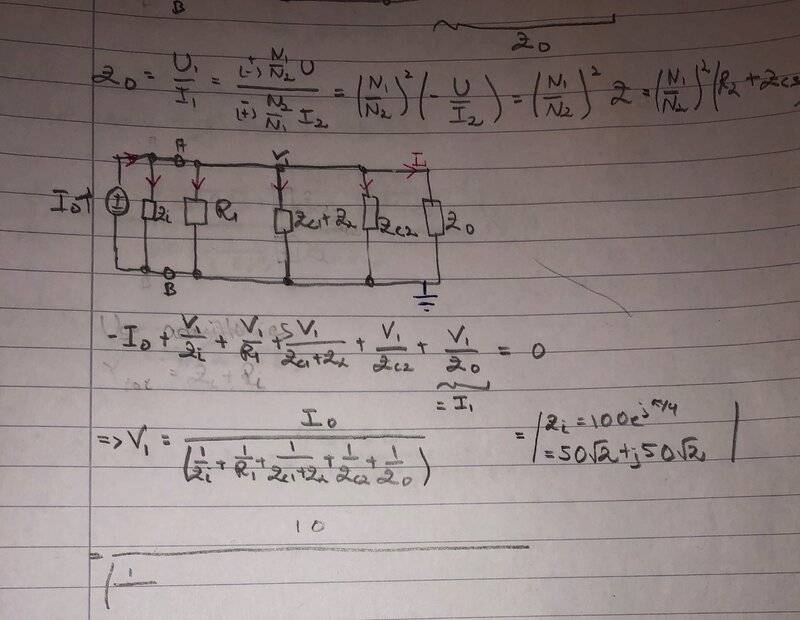 B
Z0
Z0 = U1/I1 = ((+)(-) N1/N2 U)/((-)(+) N2/N1 I2) = (N1/N2)² (-U/I2) = (N1/N2)² Z = (N1/N2)² (R2 + Zc3
A V1 I1
I0 Zi R1 Zc1+Z2 Zc2 Z0
B
-I0 + V1/Zi + V1/R1 + V1/(Zc1+Z2) + V1/Zc2 + V1/Z0 = 0
= I1
=> V1 = I0/(1/Zi + 1/R1 + 1/(Zc1+Z2) + 1/Zc2 + 1/Z0) = | Zi = 100e^(jπ/4)
= 50√2 + j50√2 |
= 10
( 1